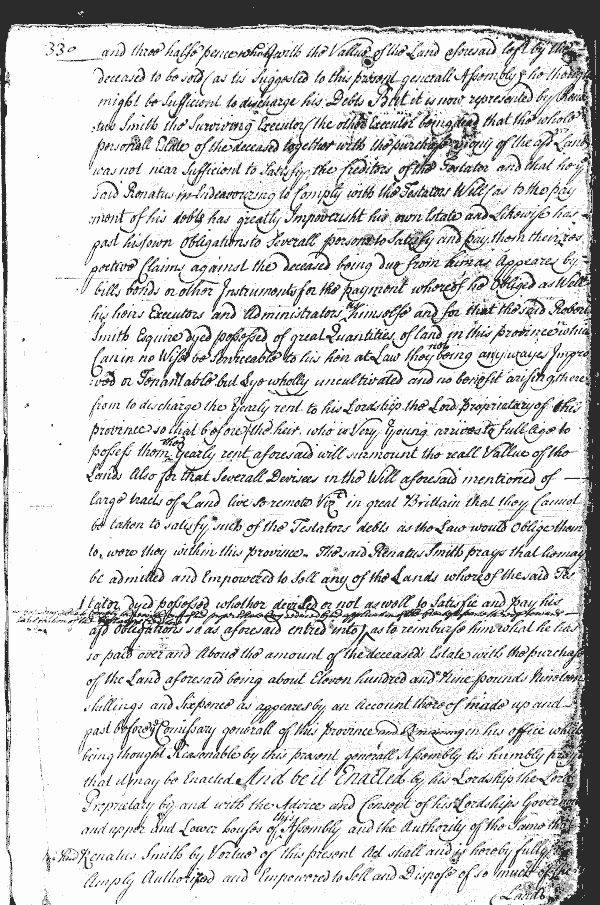 330 and three halfe pence which with the Value of the Land aforesaid left by the
deceased to be sold as tis Suggested to this present generall Assembly he thought
might be Sufficient to discharge his Debts But it is now represented by Rena
tus Smith the Surviving Executor the other Executor being dead that the whole
personall Estate of the deceased together with the purchase mony of the afd Land
was not near Sufficient to Satisfy the Creditors of the Testator and that he ye
said Renatus in Endeavouring to Comply with the Testators Will as to the pay
ment of his debts has greatly Impoverisht his own Estate and Likewise has
past his own Obligations to Severall persons to Satisfy and pay them their res
pective Claims against the deceased being due from him as Appeares by
bills bonds or other Instruments for the payment whereof he Obliged as well
his heirs Executors and Administrators as himselfe and for that the said Robert
Smith Esquire dyed possessed of great Quantities of land in this province which
Can in no Wise be Serviceable to his heir at Law they not being anywayes Improv
ived or Tenantable but Lye wholly uncultivated and no benefit arising there
from to discharge the Yearly rent to his Lordship the Lord Proprietary of this
province so that before the heir who is Very Young arrives to full Age to
possess them the Yearly rent aforesaid will surmount the reall Vallue of the
Lands Also for that Severall Devisees in the Will aforesaid mentioned of
large tracts of Land live so remote Vizt in great Brittain that they Cannot
be taken to satisfy such of the Testators debts as the Law would Oblige them
to, were they within this province. The said Renatus Smith prays that he may
be admitted and Empowered to Sell any of the Lands whereof the said Tes
tator dyed possessed whether devised or not as well to Satisfie and pay his
afd Obligations so as aforesaid entred into as to reimburse him what he has
so paid over and Above the amount of the deceaseds Estate with the purchase
of the Land aforesaid being about Eleven hundred and Nine pounds Nineteen
shillings and Sixpence as appeares by an Account thereof made up and
past before ye Comissary generall of this Province and Remaining in his office which
being thought Reasonable by this present generall Assembly tis humbly prayed
that it may be Enacted And be it Enacted by his Lordship the Lord
Proprietary by and with the Advice and Consent of his Lordships Governour
and upper and Lower houses of this Assembly and the Authority of the Same that
the said Renatus Smith by Vertue of this present Act shall and is hereby fully
Amply Authorized and Empowered to Sell and Dispose of so much of the
Lands